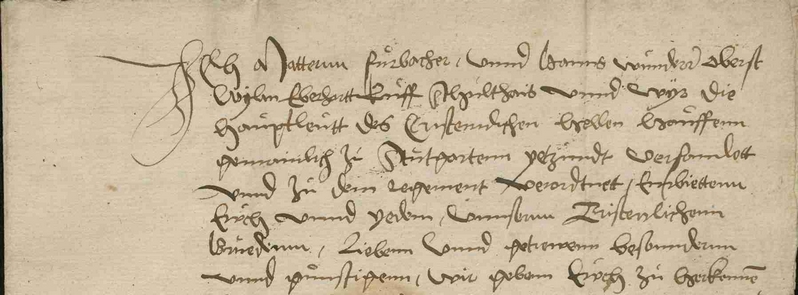 Ich Matternn fuirbacher, vnnd Hanns wunderer oberst
Wylan Eberhartt Schulthais vnnd wyr die
Hauptleutt des Cristenlichen hellen Hauffenn
gemainlich zu Stutgartenn yetzundt versamlett
vnnd zu dem regement verordtnet, Embiettenn
Euch vnnd yedem, vnnserm Cristenlichenn
Bruedernn, Liebenn vnnd getrewenn besonndernn
vnnd gunstigenn, wir gebenn Euch zu herkennen